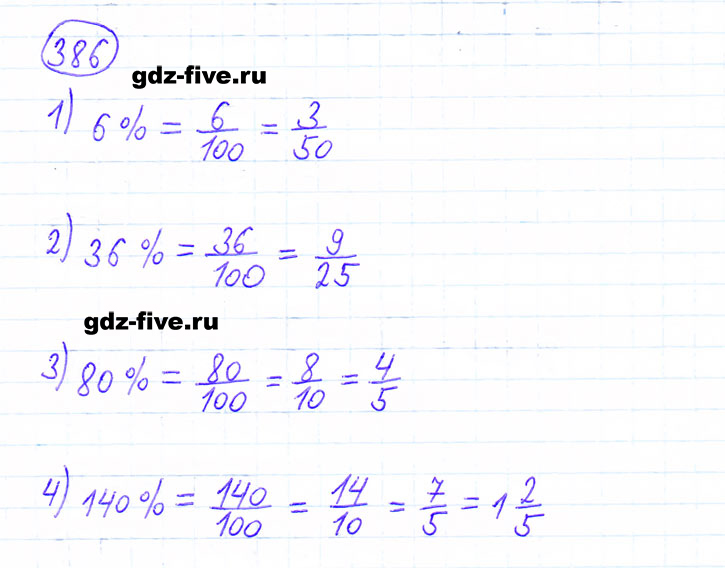 386
gdz-five.ru
1) 6% = 6/100 = 3/50
2) 36% = 36/100 = 9/25
gdz-five.ru
3) 80% = 80/100 = 8/10 = 4/5
4) 140% = 140/100 = 14/10 = 7/5 = 1 2/5